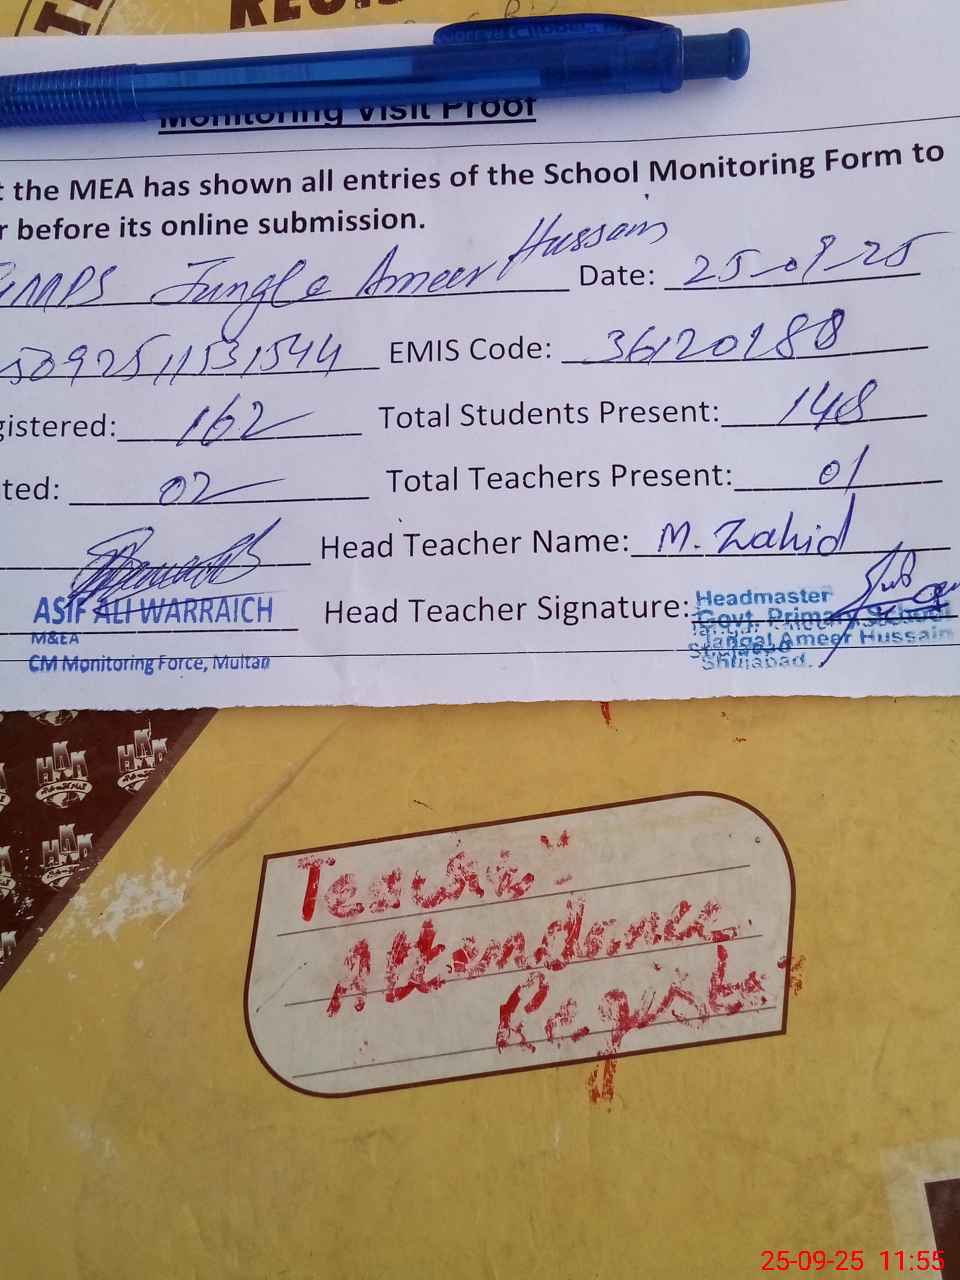 REGIS
Monitoring Visit Proof
t the MEA has shown all entries of the School Monitoring Form to
r before its online submission.
GMMPS Jungle Ameer Hussain Date: 25-09-25
5092511531544 EMIS Code: 36120188
gistered: 162 Total Students Present: 148
ted: 02 Total Teachers Present: 01
Head Teacher Name: M. Zahid
ASIF ALI WARRAICH Head Teacher Signature: Headmaster
M&EA Govt. Primary School
Jangal Ameer Hussain
CM Monitoring Force, Multan Shujabad.
HKK
HKK
HKK
Teacher's
Attendance
Register
25-09-25 11:55